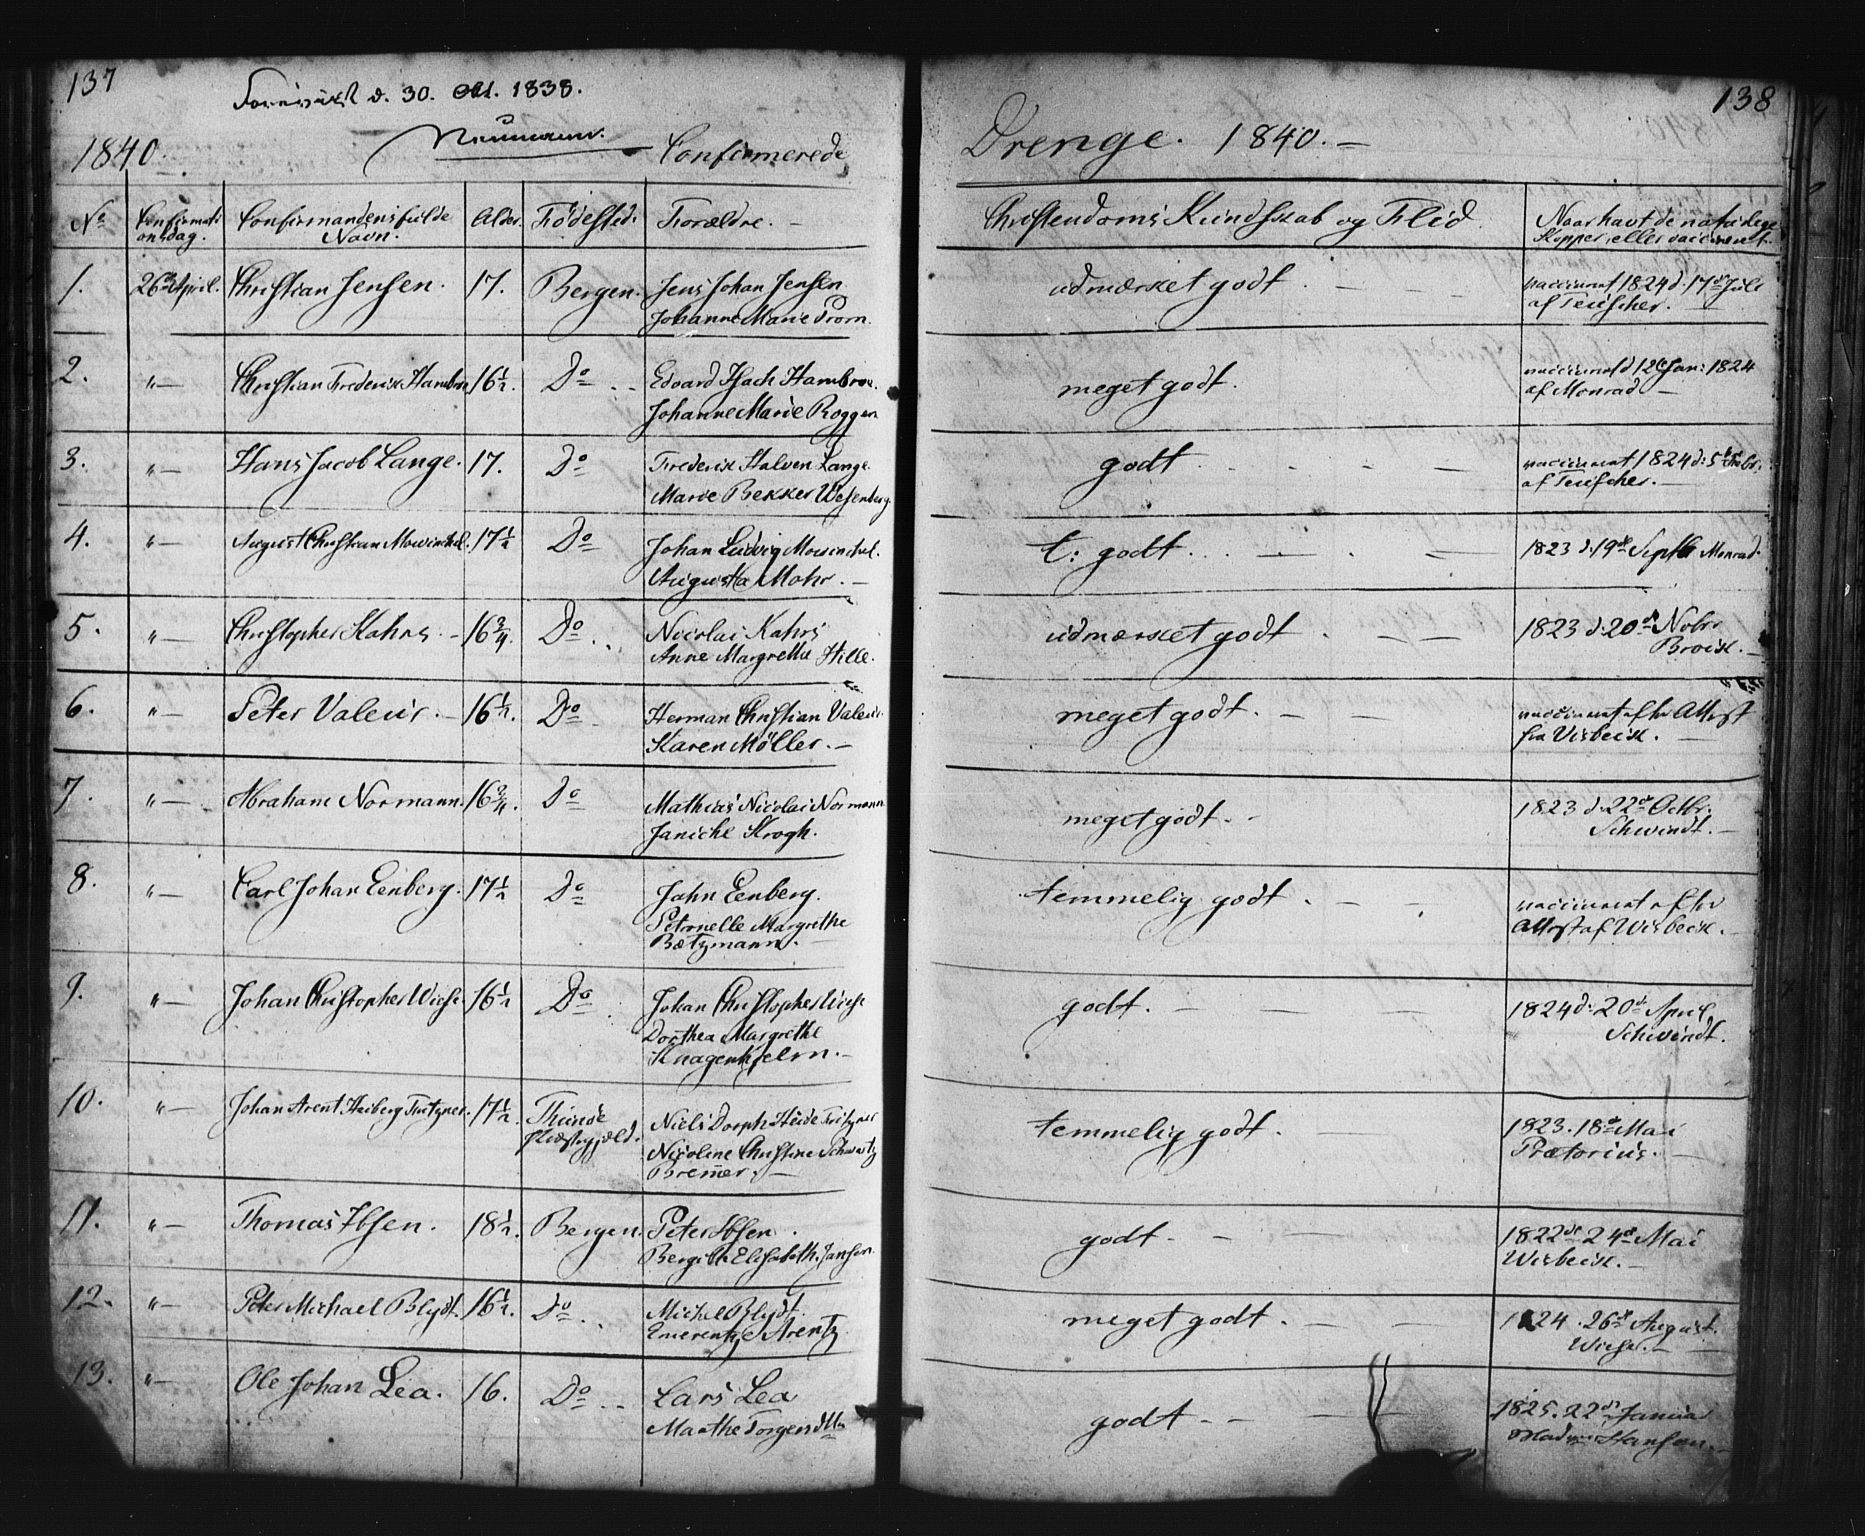 137
Foreviist d. 30. Oct. 1838.
Neumann.
1840. Confirmerede
No Confirmati onsdag. Confirmandens fulde Navn. Alder. Födested. Forældre. —
1. 26de April. Christian Jensen. 17. Bergen. Jens Johan Jensen
Johanne Marie Prom.
2. "— Christian Frederik Hambroe 16½. Do Edvard Isach Hambroe.
Johanne Marie Roggen
3. "— Hans Jacob Lange. 17. Do Frederik Halven Lange.
Marie Bekker Wesenberg.
4. "— August Christian Mowinckel. 17½ Do Johan Ludvig Mowinckel.
Augusta Mohr. —
5. "— Christopher Kahrs. — 16¾ Do Nicolai Kahrs
Anne Margrethe Hille.
6. "— Peter Valeur. — 16½. Do Herman Christian Valeur.
Karen Möller. —
7. "— Abraham Normann. 16¾. Do Mathias Nicolai Normann
Janiche Krogh.
8. "— Carl Johan Eenberg. 17½ Do Jahn Eenberg.
Petronelle Margrethe
Bætzmann. —
9. "— Johan Christopher Wiese. 16½ Do Johan Christopher Wiese
Dorthea Margrethe
Knagenhjelm. —
10. "— Johan Arent Heiberg 17½. Niels Dorph Heide
Præstegjæld. Nicoline Christine Schwartz
Bremer. —
11. "— Thomas Ibsen. 18½. Bergen. Peter Ibsen.
Bergithe Elisabeth Jansen
12. "— Peter Michael Blydt. 16½. Do Michel Blydt.
Emerentze Arentz
13. "— Ole Johan Lea. 16. Do Lars Lea
Marthe Torgersdtr
138
Drenge. 1840. —
Christendoms Kundskab og Flid Naar havt de naturlige
Kopper eller vaccineret.
udmærket godt vaccineret 1824 d. 17de Juli
af Teuscher. —
meget godt. vaccineret d 12te Jan: 1824
af Monrad —
godt vaccineret 1824 d: 5te
af Teuscher. —
t: godt. 1823 d. 19de Septb Monrad.
udmærket godt 1823 d. 20de Nobr
meget godt. — vaccineret efter Attest
fra Wisbeck. —
meget godt. 1823 d. 22de Octbr.
Schwindt. —
temmelig godt. vaccineret efter
Attest af Wisbeck. —
godt. — 1824 d: 20de April
Schwindt. —
temmelig godt. — 1823. 18de Mai
Prætorius. —
godt. — 1822 d: 24de Mai
Wisbeck. —
meget godt. — 1824. 26de August.
Wiese. —
godt — 1825. 22de Januar
Hansen. —